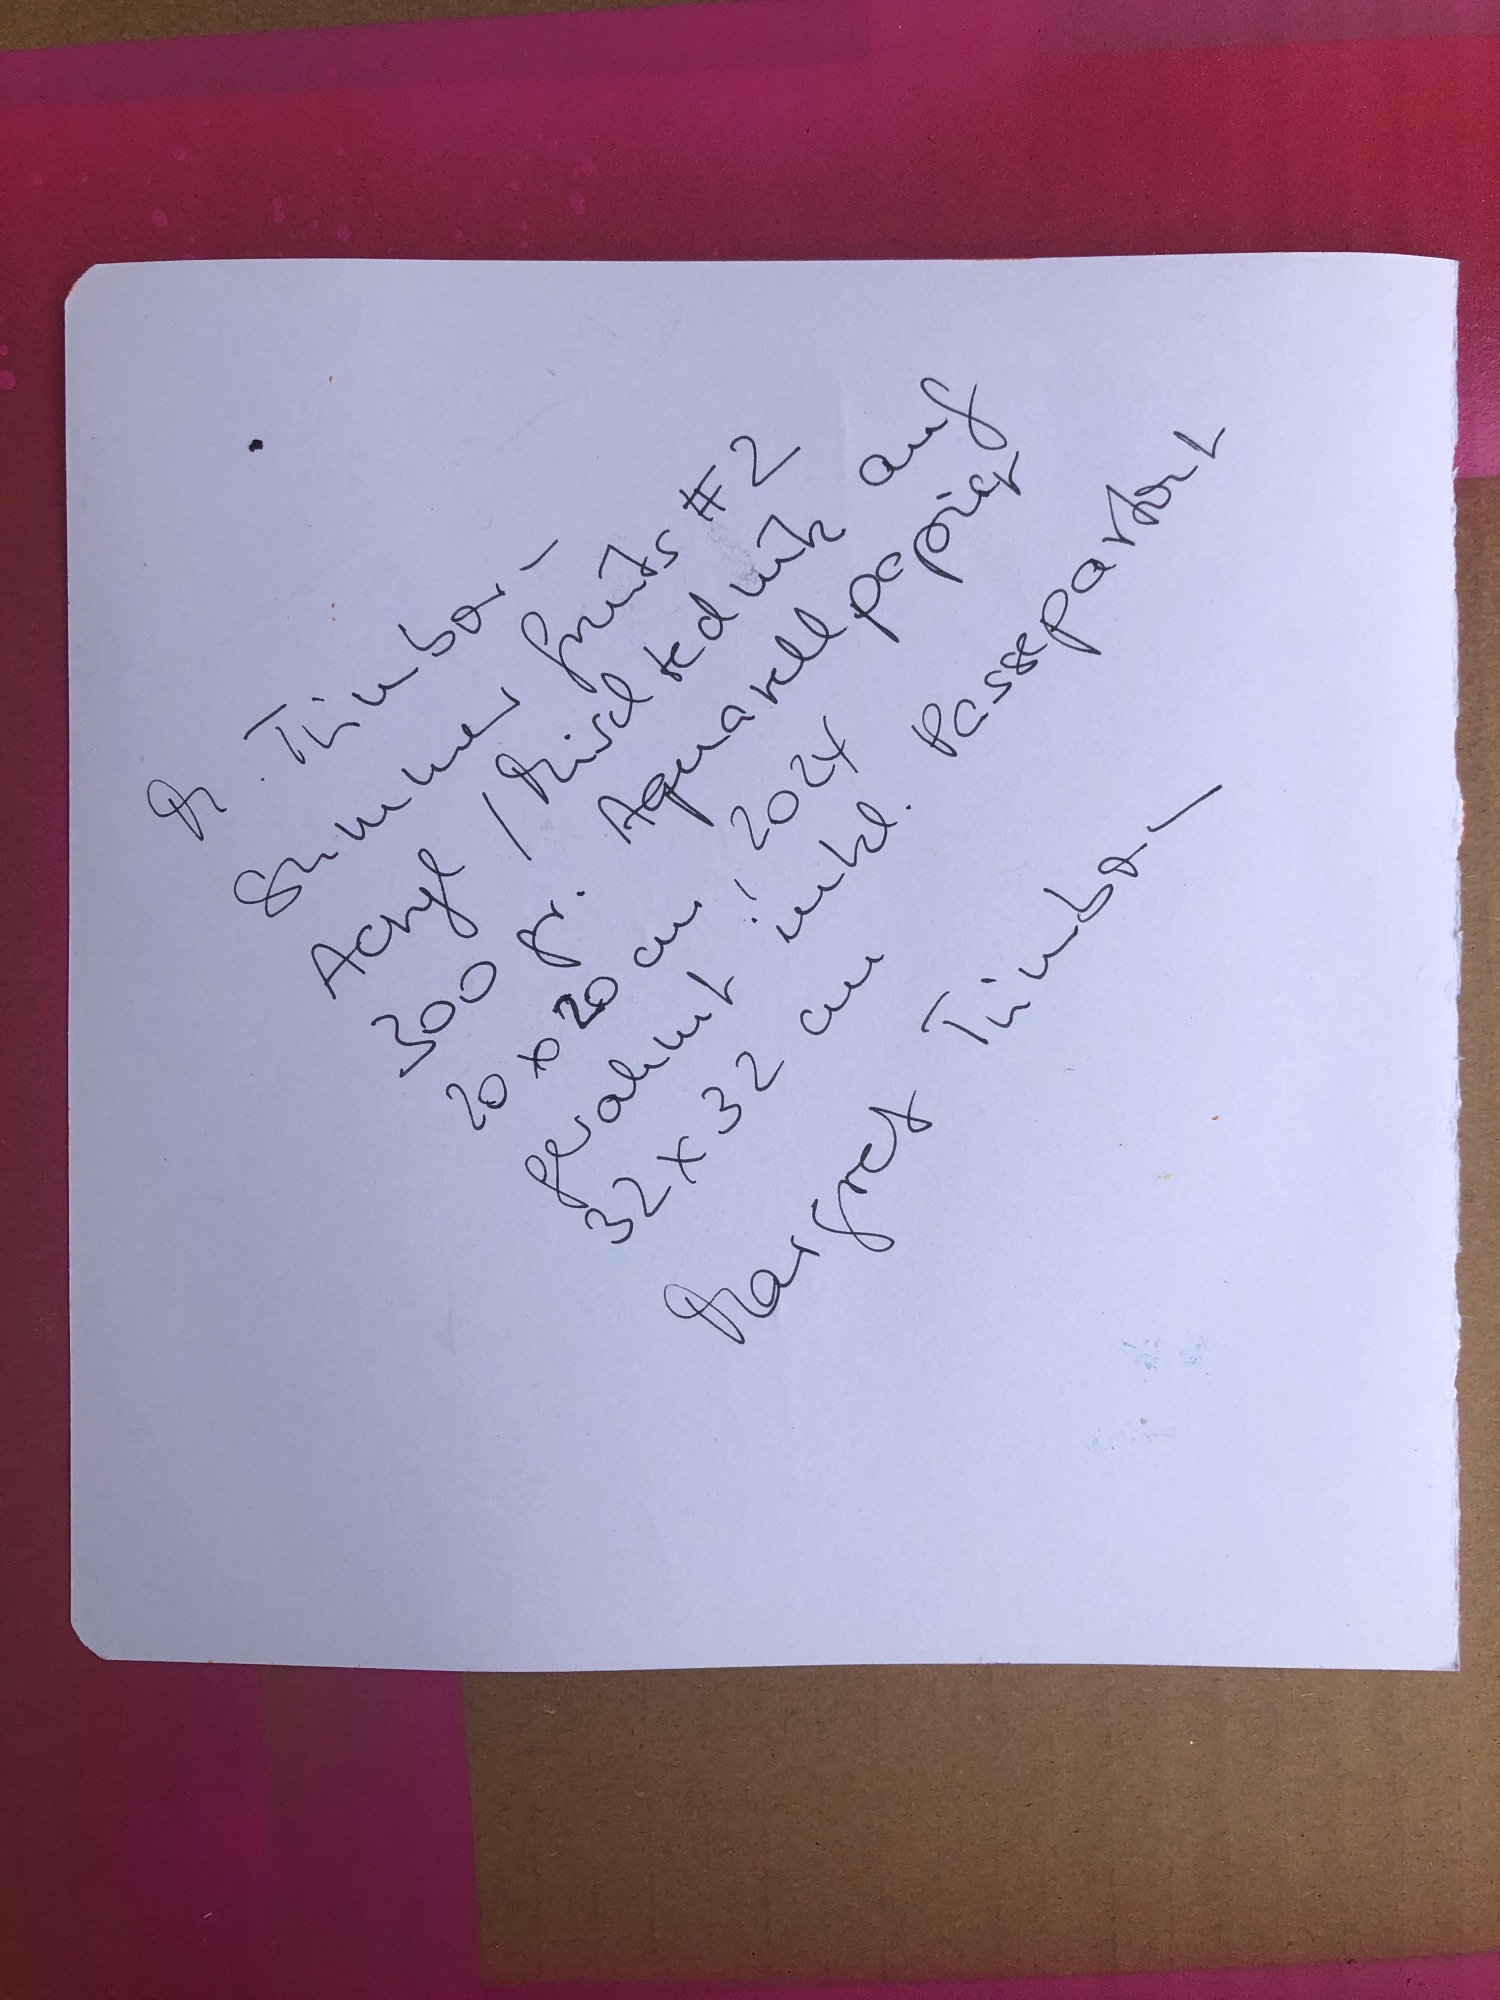 M. Timbor
Summer fruits #2
Acryl / Mischtechnik auf
300 gr. Aquarellpapier
20 x 20 cm, 2024
gerahmt inkl. Passepartout
32 x 32 cm
Margret Timbor